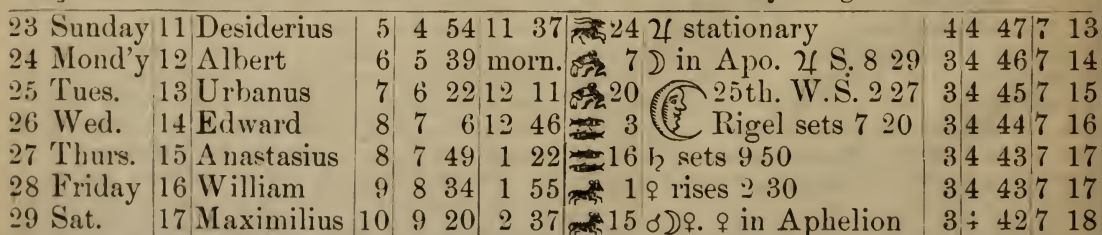 23 Sunday 11 Desiderius 5 4 54 11 37 24 ♃ stationary 4 4 47 7 13
24 Mond'y 12 Albert 6 5 39 morn. 7 ☽ in Apo. ♃ S. 8 29 3 4 46 7 14
25 Tues. 13 Urbanus 7 6 22 12 11 20 25th. W.S. 2 27 3 4 45 7 15
26 Wed. 14 Edward 8 7 6 12 46 3 Rigel sets 7 20 3 4 44 7 16
27 Thurs. 15 Anastasius 8 7 49 1 22 16 ♄ sets 9 50 3 4 43 7 17
28 Friday 16 William 9 8 34 1 55 1 ♀ rises 2 30 3 4 43 7 17
29 Sat. 17 Maximilius 10 9 20 2 37 15 ☌☽♀. ♀ in Aphelion 3 4 42 7 18